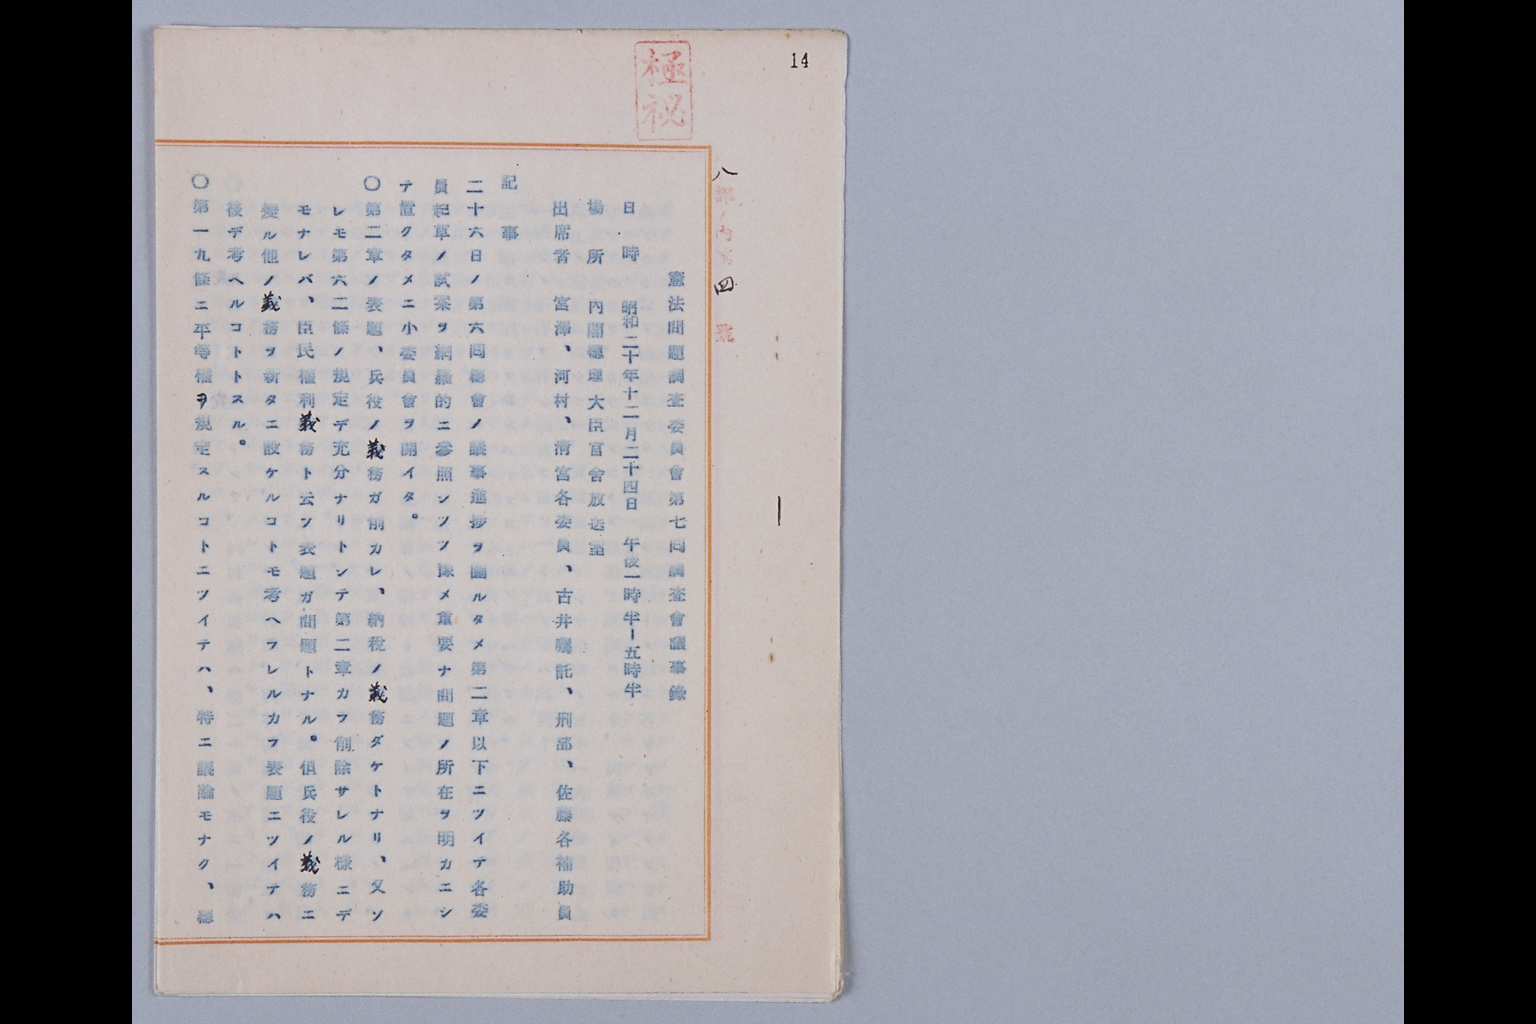 14
極祕
八部ノ內第四號
憲法問題調査委員會第七囘調査會議事錄
日時 昭和二十年十二月二十四日 午後一時半ー五時半
場所 內閣總理大臣官舍放送室
出席者、宮澤、河村、淸宮各委員、古井囑託、刑部、佐藤各補助員
記事
二十六日ノ第六囘總會ノ議事進捗ヲ圖ルタメ第二章以下ニツイテ各委
員起草ノ試案ヲ網羅的ニ參照シツツ豫メ重要ナ問題ノ所在ヲ明カニシ
テ置クタメニ小委員會ヲ開イタ。
〇第二章ノ表題、兵役ノ義務ガ削カレ、納稅ノ義務ダケトナリ、又ソ
レモ第六二條ノ規定デ充分ナリトシテ第二章カラ削除サレル樣ニデ
モナレバ、臣民權利義務ト云フ表題ガ問題トナル。但兵役ノ義務ニ
變ル他ノ義務ヲ新タニ設ケルコトモ考ヘラレルカラ表題ニツイテハ
後デ考ヘルコトトスル。
〇第一九條ニ平等權ヲ規定スルコトニツイテハ、特ニ議論モナク、總